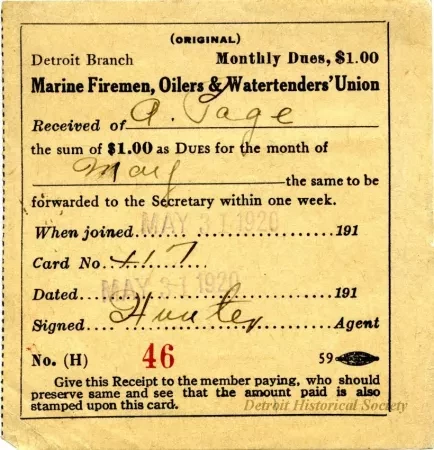 (ORIGINAL)
Detroit Branch Monthly Dues, $1.00
Marine Firemen, Oilers & Watertenders' Union
Received of A. Page
the sum of $1.00 as DUES for the month of
May the same to be
forwarded to the Secretary within one week.
MAY 31 1920
When joined 191
Card No. 417
MAY 31 1920
Dated 191
Signed Hunter Agent
No. (H) 46 59
Give this Receipt to the member paying, who should
preserve same and see that the amount paid is also
stamped upon this card.
Detroit Historical Society